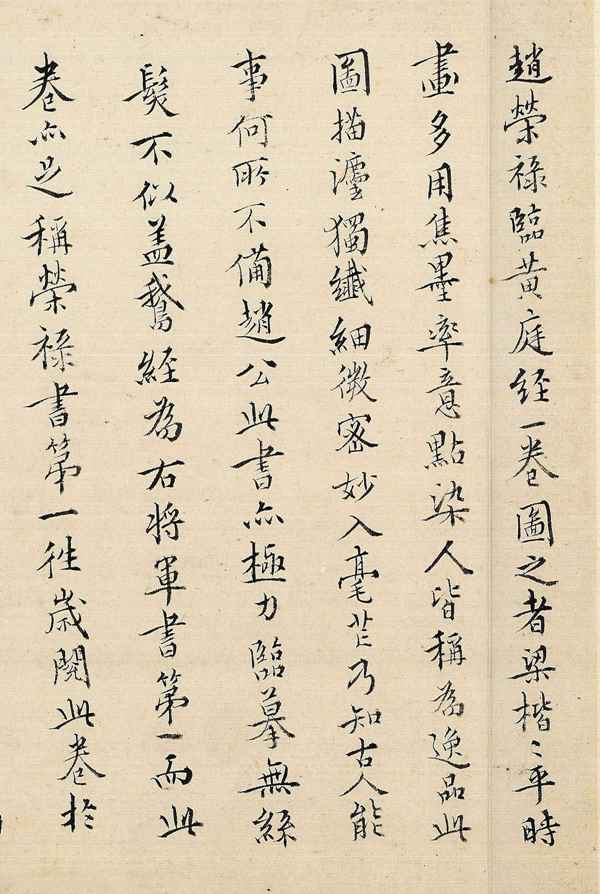 趙榮祿臨黃庭經一卷圖之者梁楷〻平時
畫多用焦墨率意點染人皆稱為逸品此
圖描瀋獨纖細微密妙入毫芒乃知古人能
事何所不備趙公此書亦極力臨摹無絲
髮不似蓋鵝經為右將軍書第一而此
卷亦足稱榮祿書第一往歲閱此卷於